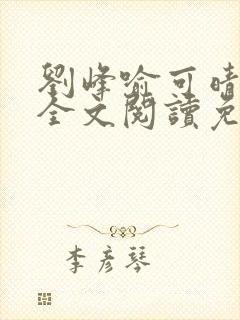 劉峰喻可晴
全文閱讀免
李彥琴